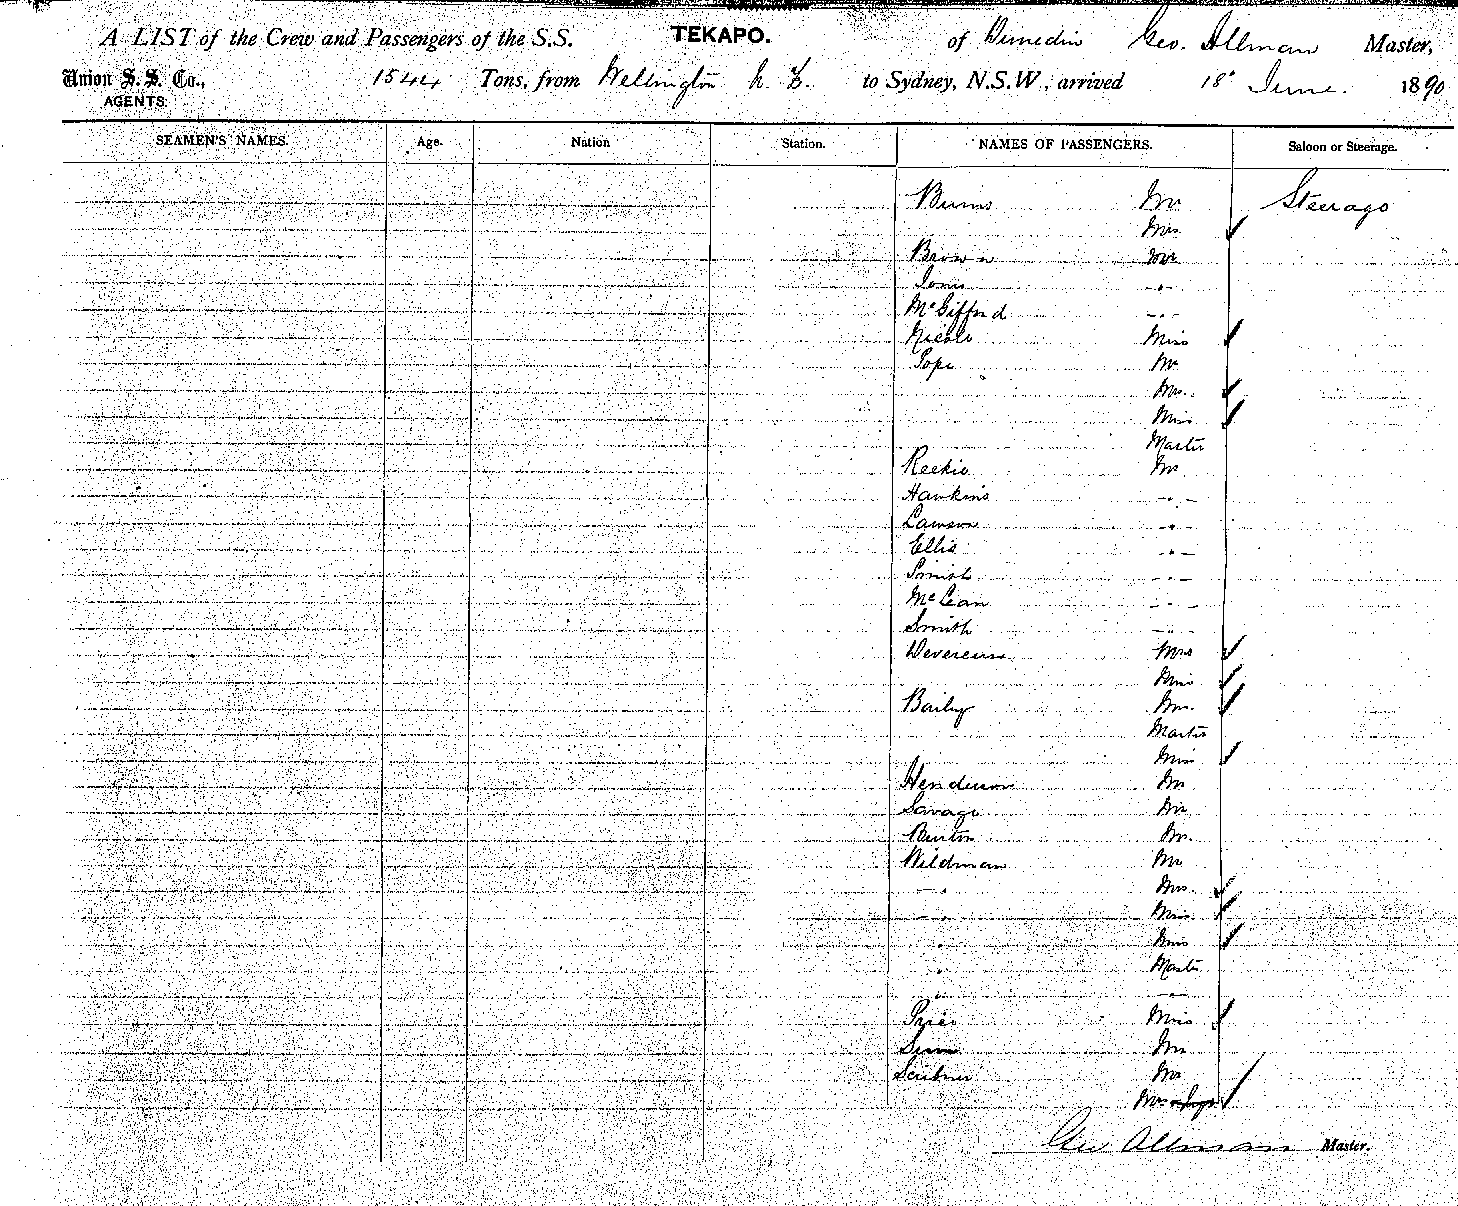 A LIST of the Crew and Passengers of the S.S. TEKAPO. of Dunedin Geo. Allman Master,
Union S. S. Co., 1544 Tons, from Wellington N. Z. to Sydney, N.S.W., arrived 18" June. 1890
AGENTS.
SEAMEN'S NAMES. Age. Nation Station. NAMES OF PASSENGERS. Saloon or Steerage.
Burns Mr Steerage
Mrs
Brown Mr
-"-
McGifford -"-
Miss
Pope Mr
Mrs.
Miss
Master
Reekie Mr
Hawkins -"-
Lawson -"-
Ellis -"-
Smith -"-
McLean -"-
Smith -"-
Devereux Mrs
Miss
Baily Mrs.
Master
Miss
Henderson Mr
Savage Mr
Burton Mr.
Wildman Mr
-" Mrs.
-" Miss.
" Miss
" Master
" -"-
Price Miss
Sim Mr
Scribner Mr
Mrs
Geo Allman Master.